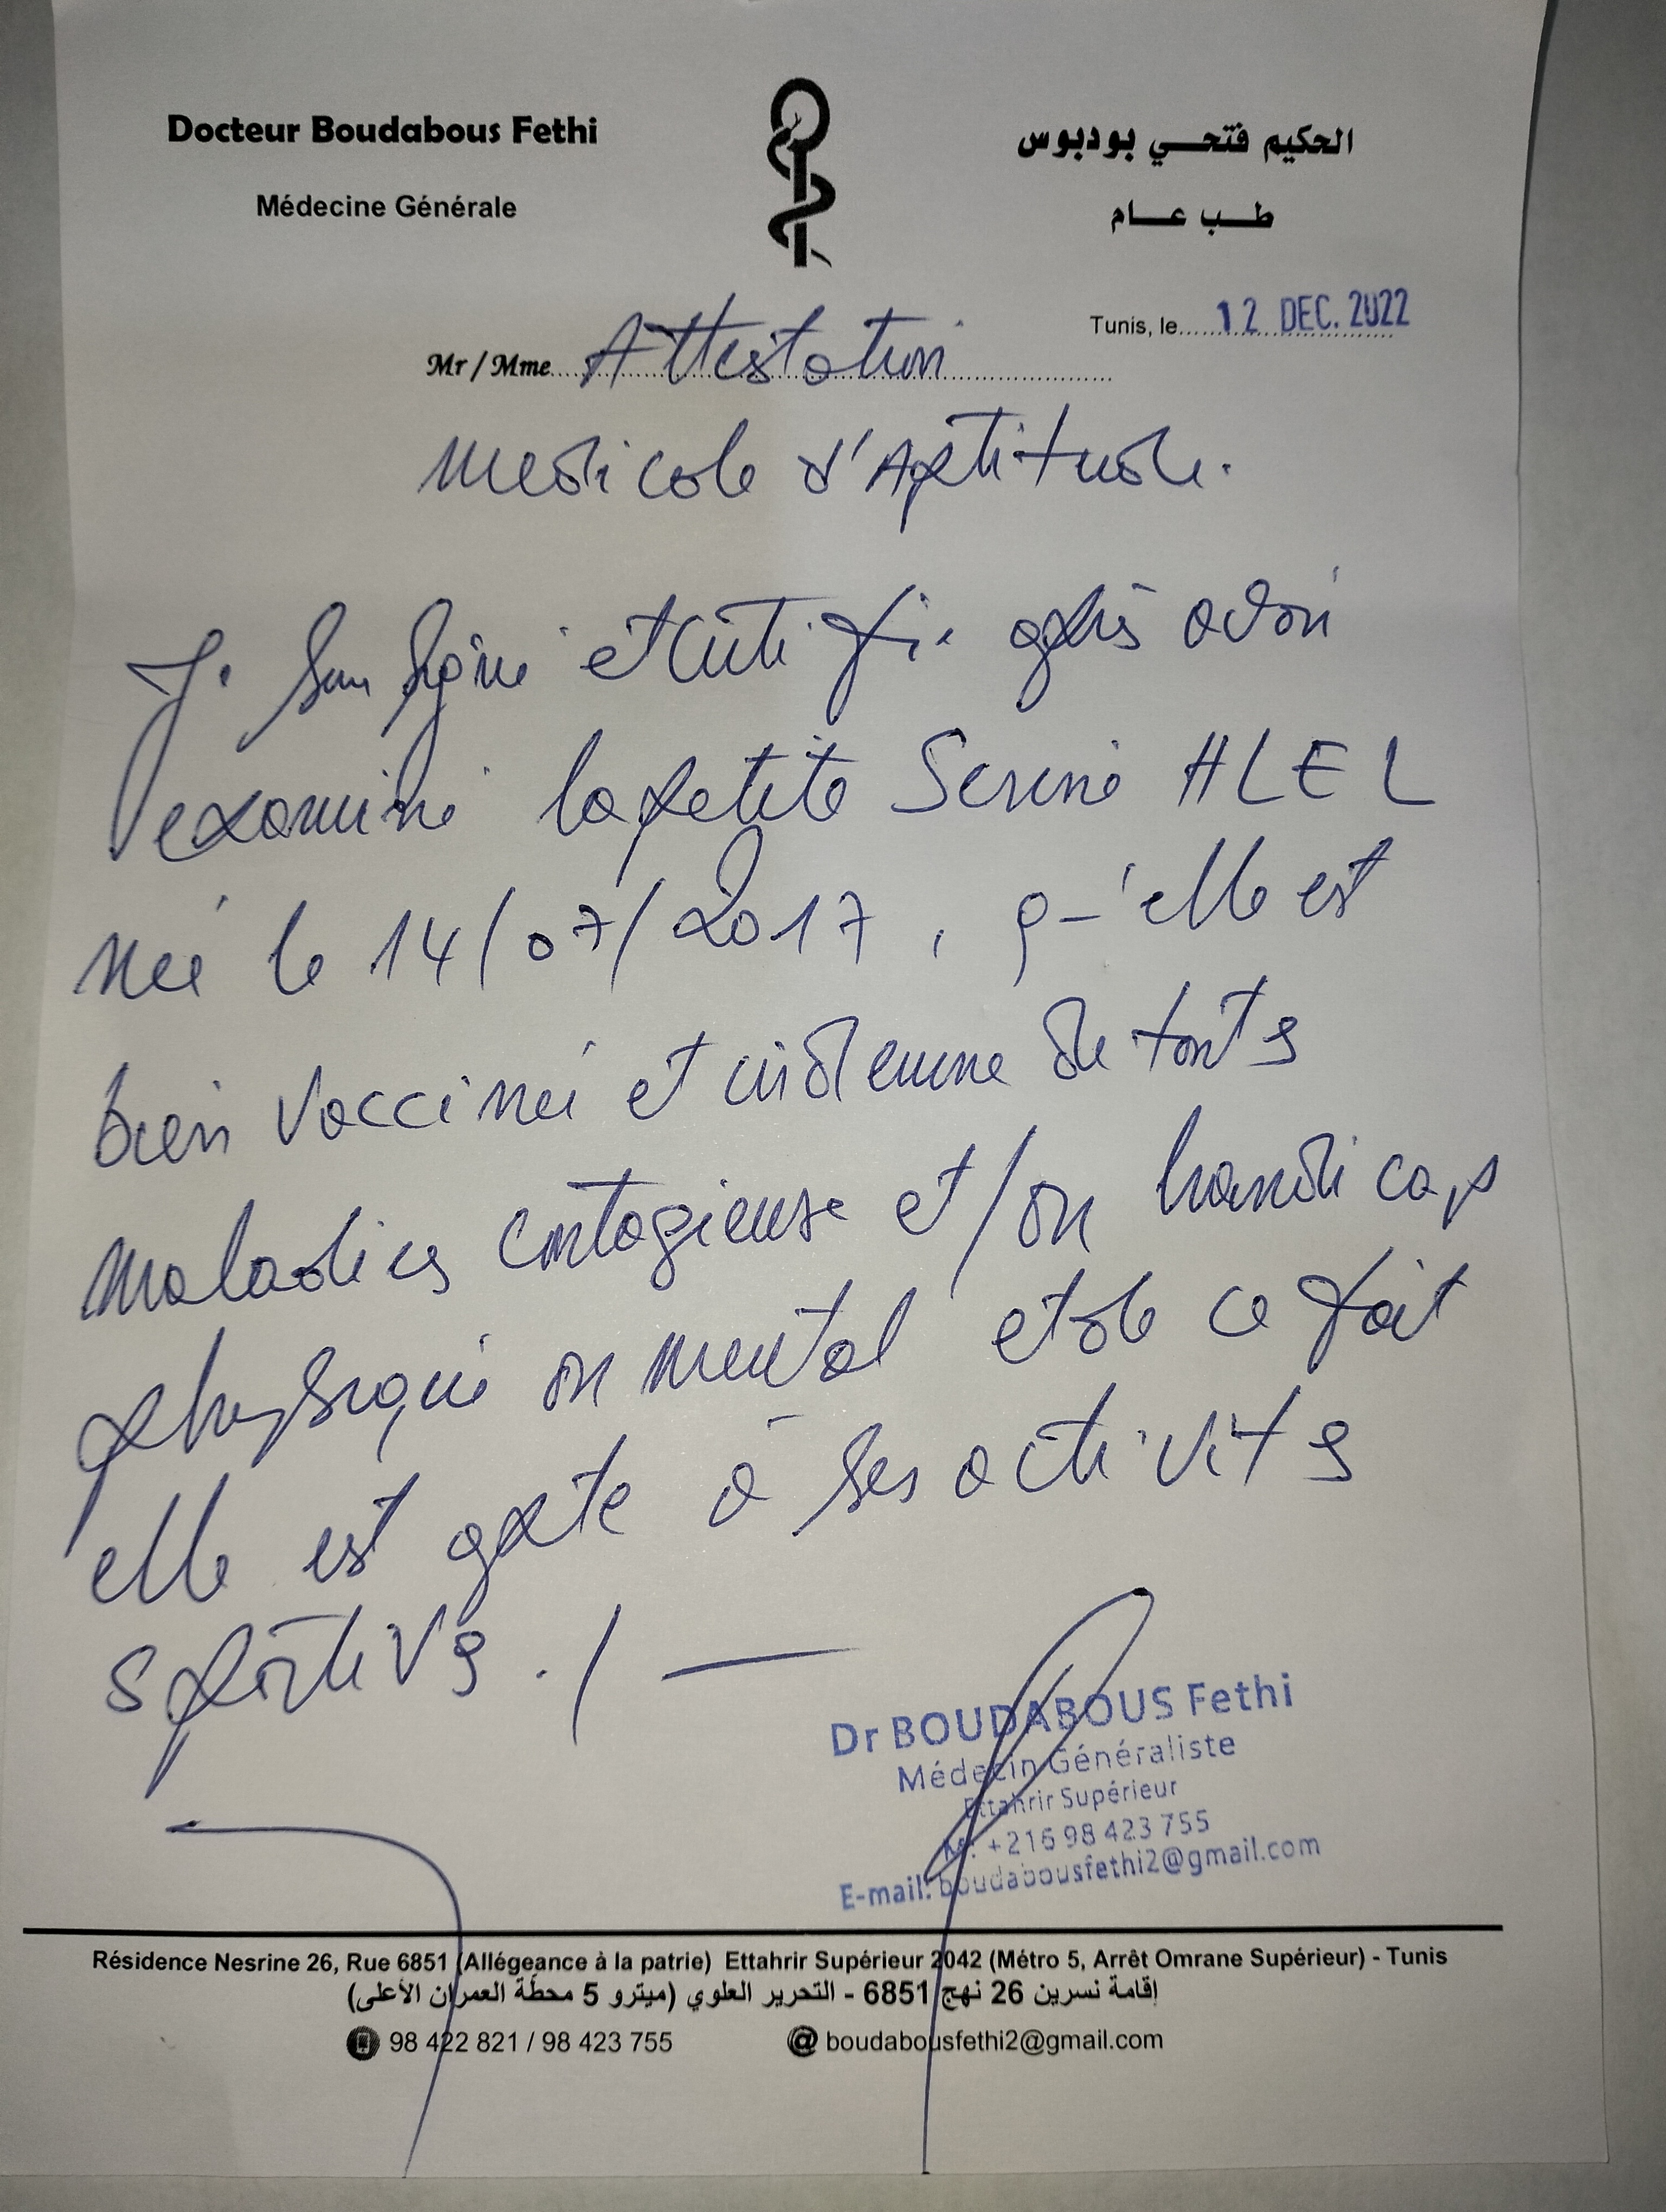 Docteur Boudabous Fethi
Médecine Générale
الحكيم فتحي بودبوس
طب عام
Tunis, le 12 DEC. 2022
Mr / Mme Attestation
Medicale d'Aptitude.
Je soussigné et certifie après avoir
examiné la petite Serine HLEL
née le 14/07/2017, qu'elle est
bien vaccinée et indemne de toutes
maladies contagieuse et/ou handicap
physique ou mental et de ce fait
elle est apte à ses activités
sportives ./—
Dr BOUDABOUS Fethi
Médecin Généraliste
Ettahrir Supérieur
M: +216 98 423 755
E-mail: boudabousfethi2@gmail.com
Résidence Nesrine 26, Rue 6851 (Allégeance à la patrie) Ettahrir Supérieur 2042 (Métro 5, Arrêt Omrane Supérieur) - Tunis
إقامة نسرين 26 نهج 6851 - التحرير العلوي (ميترو 5 محطة العمران الأعلى)
98 422 821 / 98 423 755 @ boudabousfethi2@gmail.com